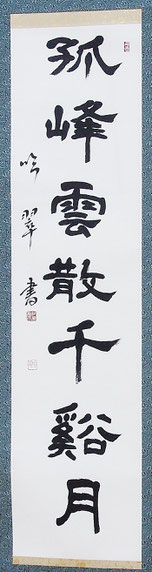 孤峰雲散千谿月
吟翠書